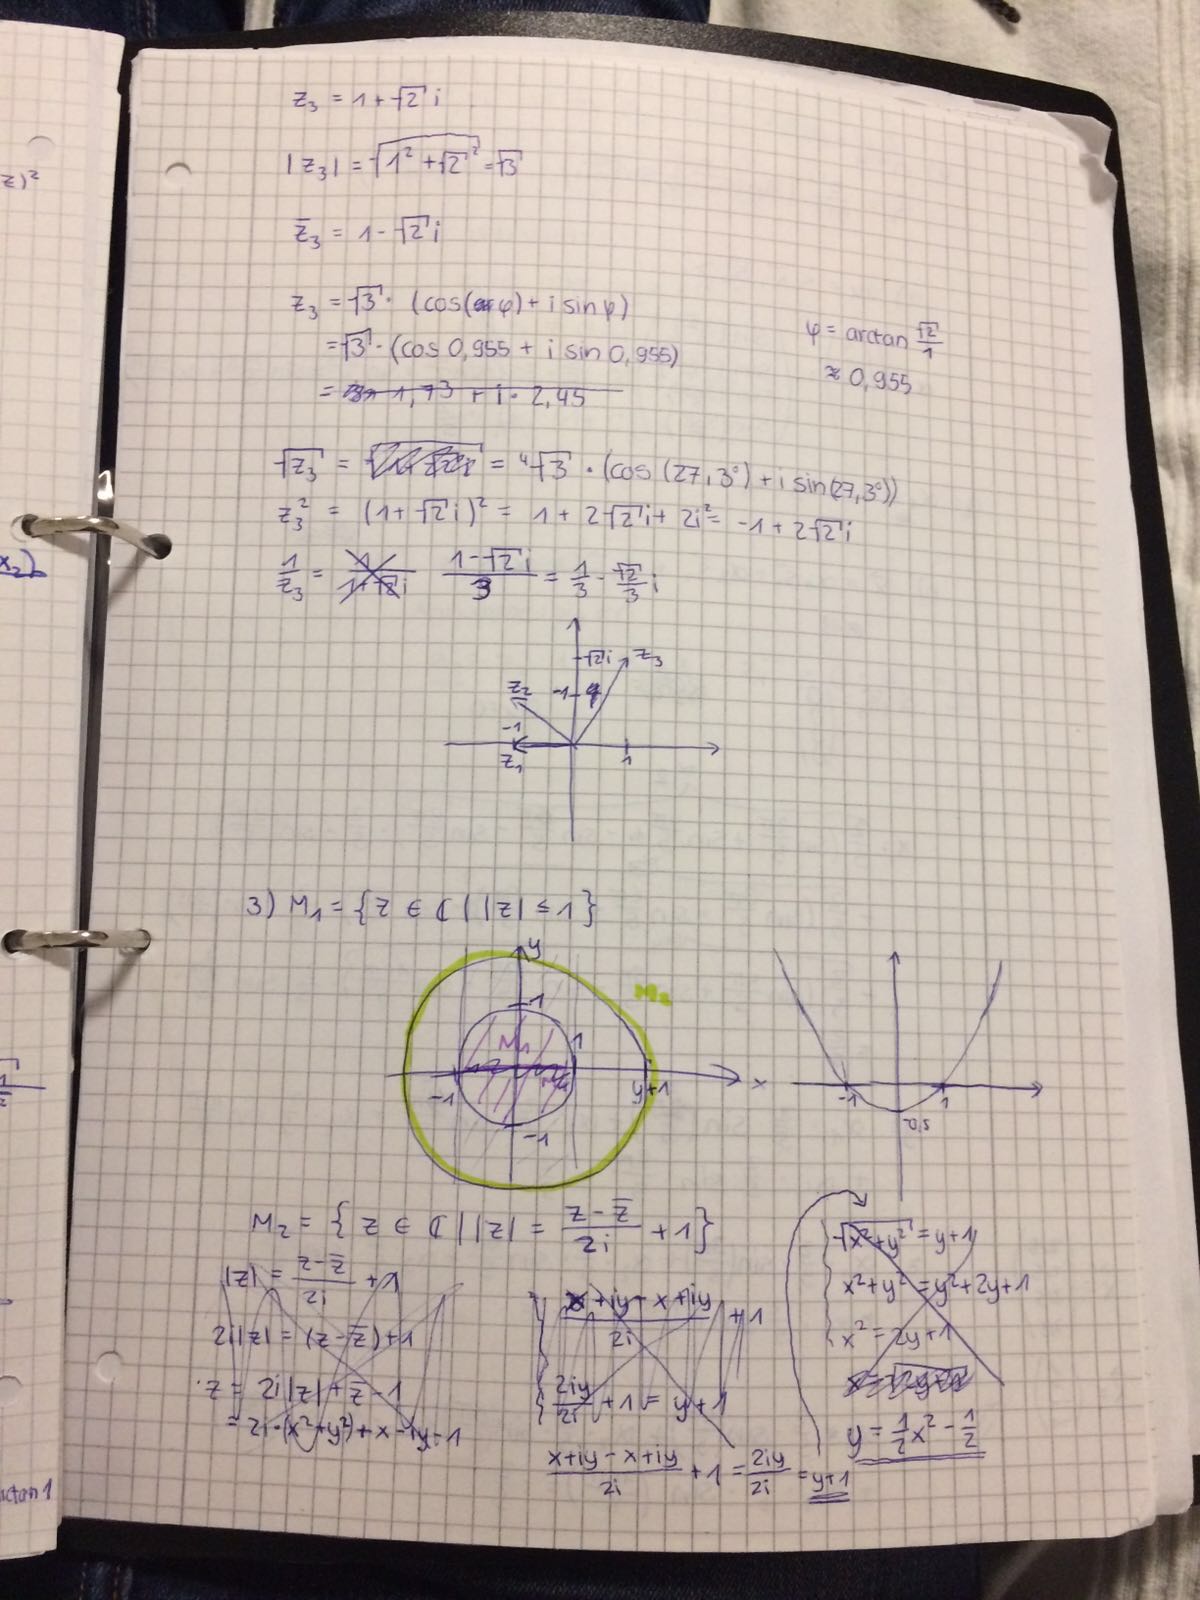 z)²
z₃ = 1 + √2 i
|z₃| = √(1² + √2²) = √3
z̄₃ = 1 - √2 i
z₃ = √3 · (cos(φ) + i sin φ)
= √3 · (cos 0,955 + i sin 0,955)
= 1,73 + i · 2,45
φ = arctan √2/1
≈ 0,955
√z₃ = = ⁴√3 · (cos (27,3°) + i sin(27,3°))
z₃² = (1 + √2 i)² = 1 + 2√2 i + 2i² = -1 + 2√2 i
x₂)
1/z₃ = 1/(1+√2 i) (1-√2 i)/3 = 1/3 - √2/3 i
√2 i
z₃
z₂
1
φ
-1
z₁
1
3) M₁ = {z ∈ ℂ | |z| ≤ 1}
y
M₂
1
M₁
1
-1
y+1
x
-1
-1
1
-0,5
M₂ = {z ∈ ℂ | |z| = (z - z̄)/2i + 1}
|z| = (z - z̄)/2i + 1
2i|z| = (z - z̄) + 1
z = 2i|z| + z̄ - 1
= 2i·(x² + y²) + x - iy - 1
(x + iy - x + iy)/2i + 1
2iy/2i + 1 = y + 1
(x + iy - x + iy)/2i + 1 = 2iy/2i = y+1
√(x² + y²) = y + 1
x² + y² = y² + 2y + 1
x² = 2y + 1
y = 1/2 x² - 1/2
arctan 1